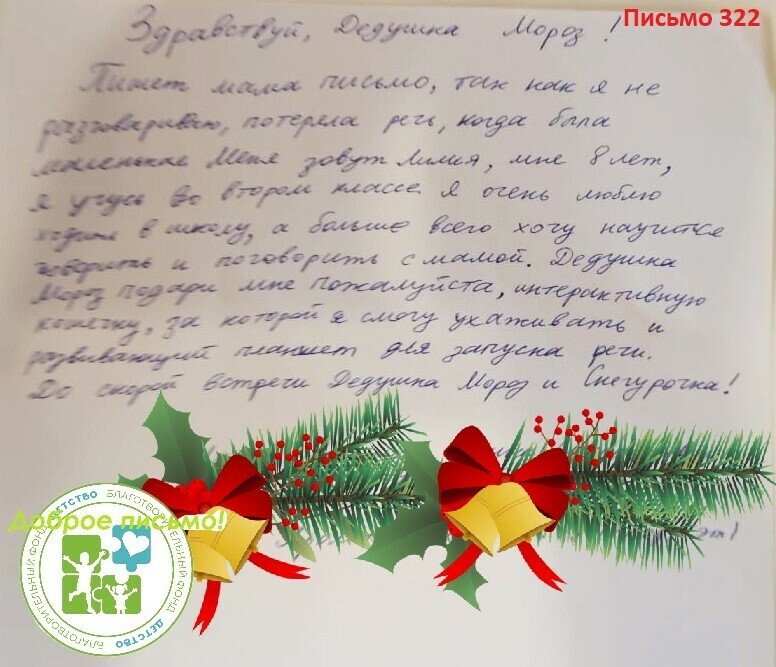 Письмо 322
Здравствуй, Дедушка Мороз!
Пишет мама письмо, так как я не
разговариваю, потерела речь, когда была
маленькая Меня зовут Лилия, мне 8 лет,
я учусь во втором классе. Я очень люблю
ходить в школу, а больше всего хочу научиться
говорить и поговорить с мамой. Дедушка
Мороз подари мне пожалуйста, интерактивную
кошечку, за которой я смогу ухаживать и
развивающий планшет для запуска речи.
До скорой встречи Дедушка Мороз и Снегурочка!
Доброе письмо!
БЛАГОТВОРИТЕЛЬНЫЙ ФОНД ДЕТСТВО
БЛАГОТВОРИТЕЛЬНЫЙ ФОНД ДЕТСТВО